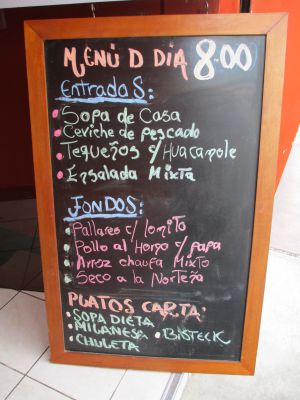 MENÚ D DIA 8.00
Entradas:
Sopa de Casa
Ceviche de Pescado
Tequeños c/ Huacamole
Ensalada Mixta
FONDOS:
Pallares c/ lomito
Pollo al Horno c/ papa
Arroz chaufa Mixto
Seco a la Norteña
PLATOS CARTA:
SOPA DIETA
MILANESA • BISTECK
CHULETA